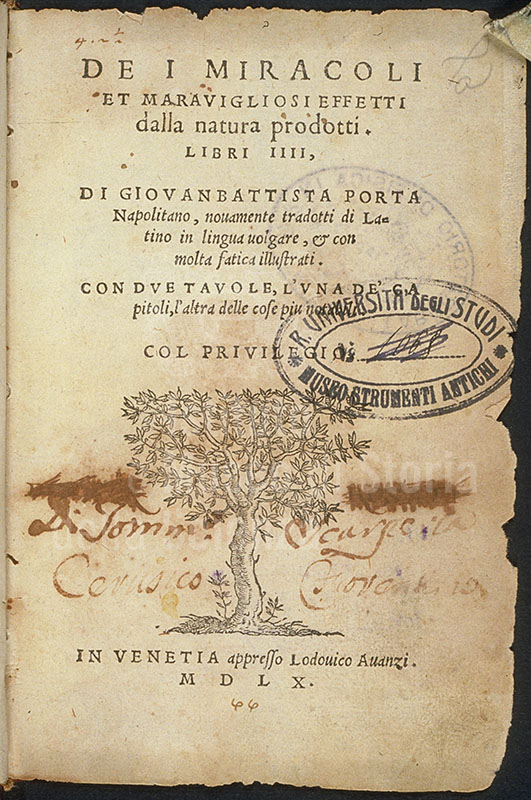 DE I MIRACOLI
ET MARAVIGLIOSI EFFETTI
dalla natura prodotti.
LIBRI IIII,
DI GIOVANBATTISTA PORTA
Napolitano, nouamente tradotti di La-
tino in lingua uolgare, & con
molta fatica illustrati.
CON DVE TAVOLE, L'VNA DE' CA
pitoli, l'altra delle cose piu notabili
COL PRIVILEGIO
R. UNIVERSITÀ DEGLI STUDI
No 1068
MUSEO STRUMENTI ANTICHI
Di Tomm.o Scarpetta
Cerusico
IN VENETIA appresso Lodouico Auanzi.
M D L X.